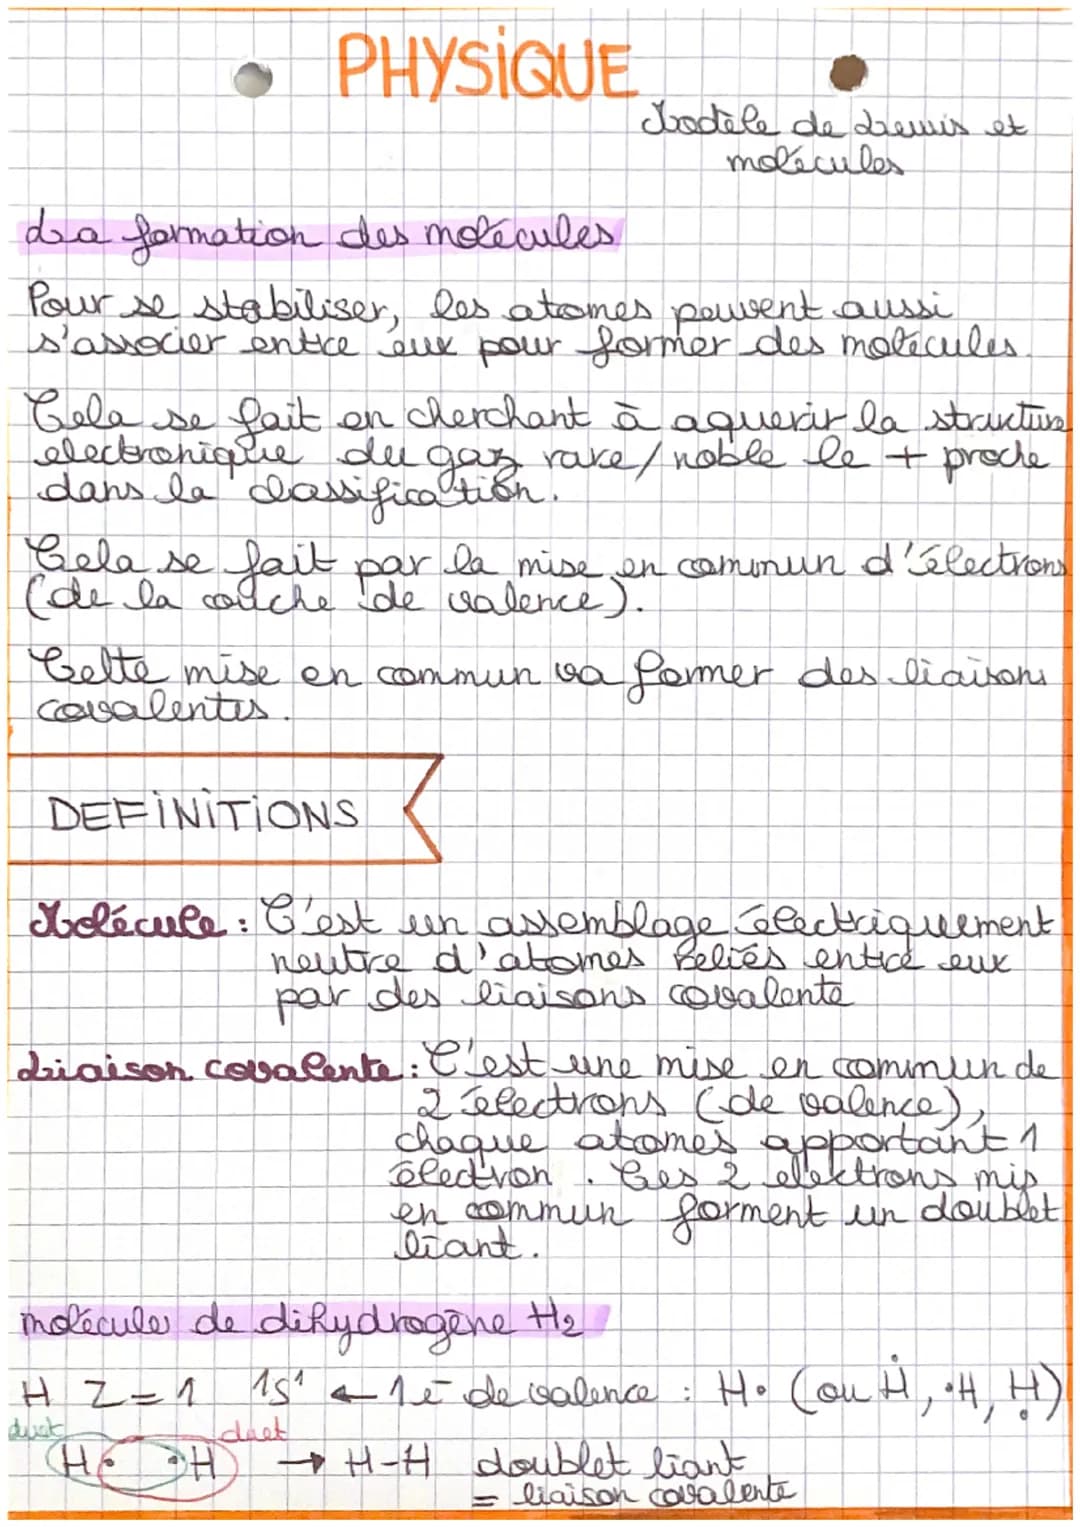 PHYSIQUE
Modèle de Lewis et
molécules
La formation des molécules
Pour se stabiliser, les atomes peuvent aussi
s'associer entre eux pour former des molécules.
Cela se fait en cherchant à aquerir la structure
electronique du gaz rare/noble le + proche
dans la classification.
Cela se fait par la mise en commun d'électrons
(de la couche de valence).
Cette mise en commun va former des liaisons
covalentes.
DEFINITIONS
Molécule : C'est un assemblage électriquement
neutre d'atomes reliés entre eux
par des liaisons covalente
Liaison covalente : C'est une mise en commun de
2 électrons (de valence),
chaque atomes apportant 1
électron. Ces 2 elektrons mis
en commun forment un doublet
liant.
molécules de dihydrogène H₂
H Z = 1 1s¹ ← 1 e⁻ de valence : H• (ou Ḣ, •H, Ḥ)
duet duet
H• •H → H-H doublet liant
= liaison covalente